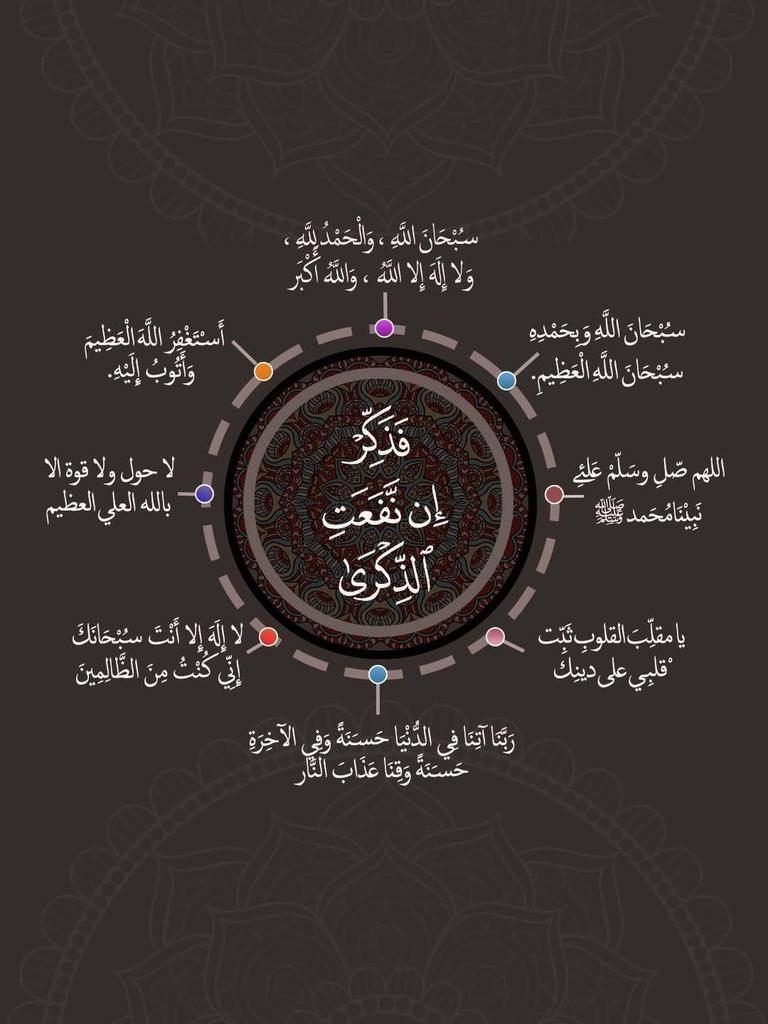 سُبْحَانَ اللَّهِ ، وَالْحَمْدُ لِلَّهِ ،
وَلا إِلَهَ إِلا اللَّهُ ، وَاللَّهُ أَكْبَر
سُبْحَانَ اللَّهِ وَبِحَمْدِهِ
سُبْحَانَ اللَّهِ الْعَظِيمِ.
اللهم صّلِ وسَلّمْ عَلىٰ
نَبِيْنَا مُحَمد ﷺ
يا مقلِّبَ القلوبِ ثَبِّت
قلبِي على دينِكَ
رَبَّنَا آتِنَا فِي الدُّنْيَا حَسَنَةً وَفِي الآخِرَةِ
حَسَنَةً وَقِنَا عَذَابَ النَّار
لا إِلَهَ إِلا أَنْتَ سُبْحَانَكَ
إِنِّي كُنْتُ مِنَ الظَّالِمِينَ
لا حول ولا قوة الا
بالله العلي العظيم
أَسْتَغْفِرُ اللَّهَ الْعَظِيمَ
وَأَتُوبُ إِلَيْهِ.
فَذَكِّرْ
إِن نَّفَعَتِ
ٱلذِّكْرَىٰ